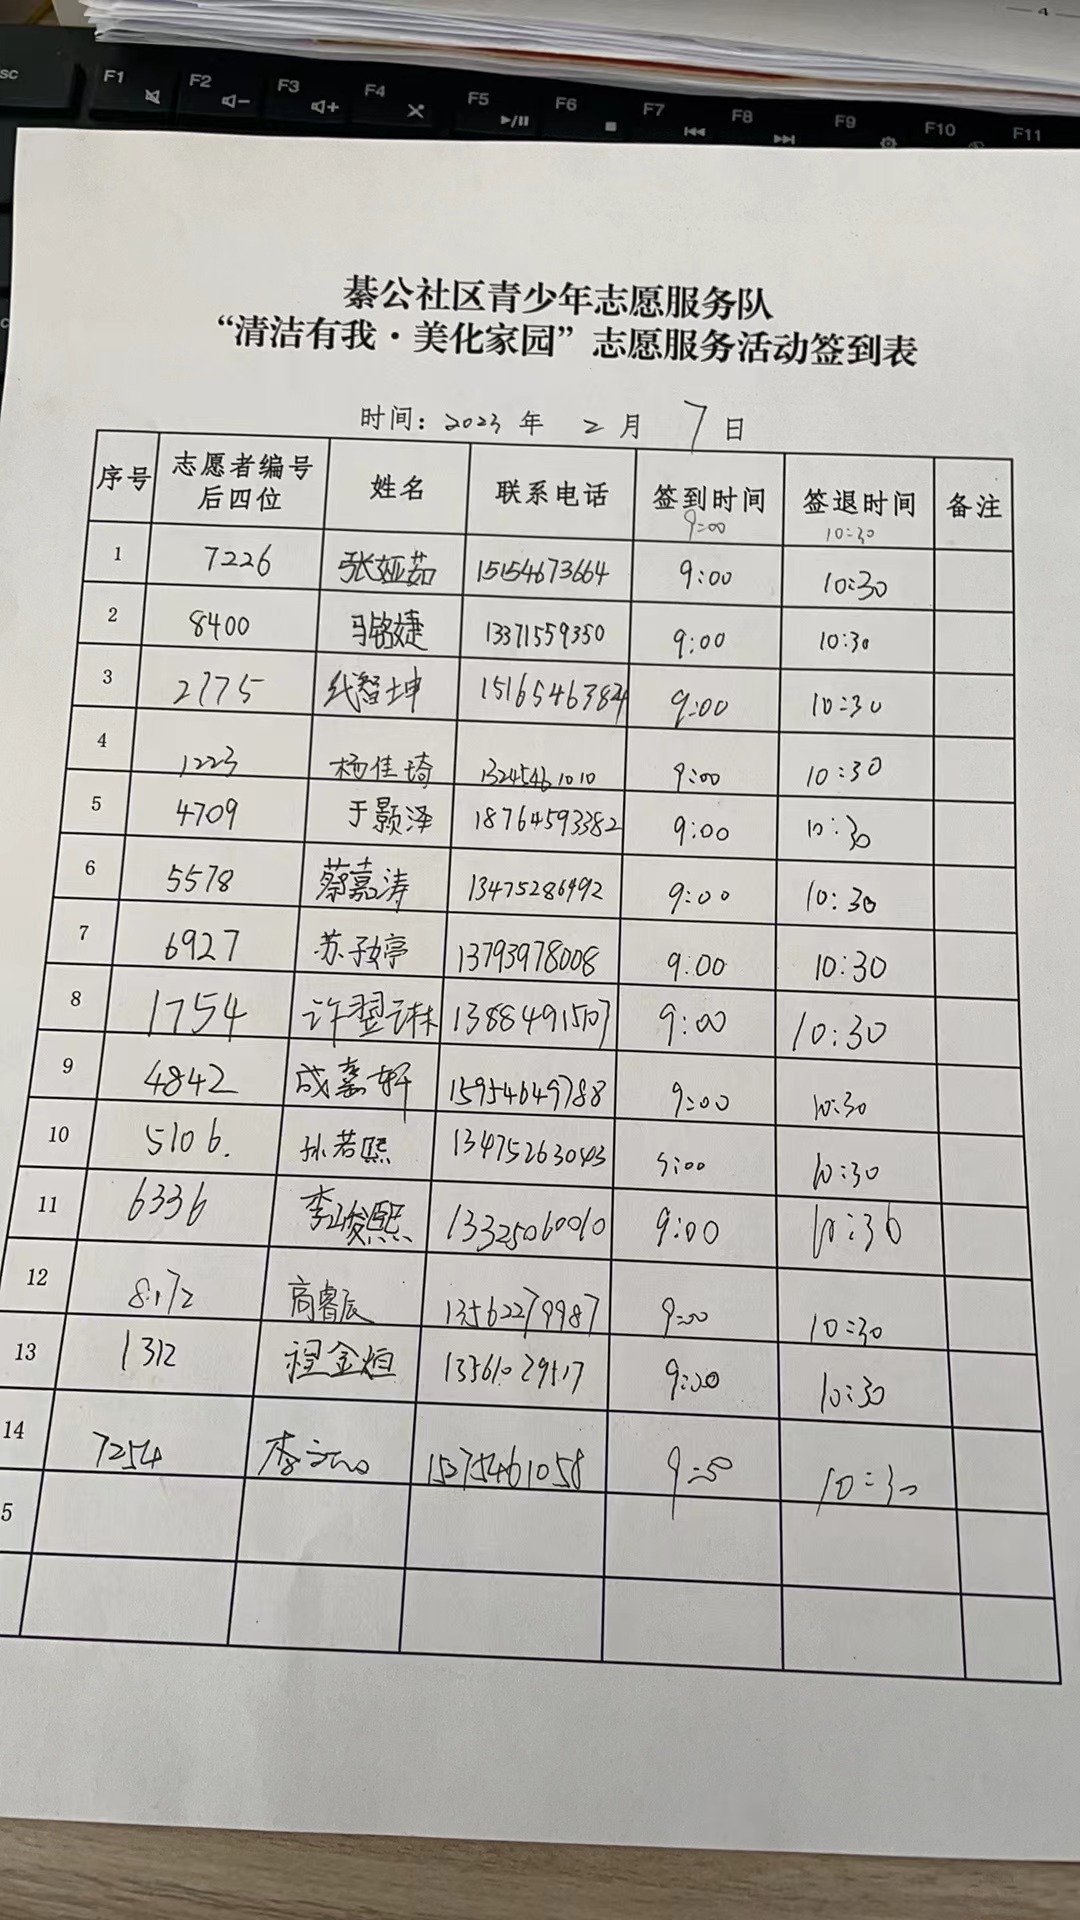 4
sc
F1
F2
F3
F4
F5
F6
F7
F8
F9
F10
F11
綦公社区青少年志愿服务队
“清洁有我·美化家园”志愿服务活动签到表
时间：2023 年 2 月 7 日
序号 志愿者编号后四位 姓名 联系电话 签到时间 9:00 签退时间 10:30 备注
1 7226 张娅茹 15154673664 9:00 10:30
2 8400 马铭婕 13371559350 9:00 10:30
3 2775 代智坤 9:00 10:30
4 1223 杨佳琦 13245461010 9:00 10:30
5 4709 于颢泽 18764593382 9:00 10:30
6 5578 蔡嘉涛 13475286992 9:00 10:30
7 6927 苏子婷 13793978008 9:00 10:30
8 1754 13884915107 9:00 10:30
9 4842 成嘉轩 15954649788 9:00 10:30
10 5106. 孙若熙 13475263043 9:00 10:30
11 6336 李峻熙 13325060010 9:00 10:30
12 8172 高睿辰 13562279987 9:00 10:30
13 1312 程金烜 13561029517 9:00 10:30
14 7254 李 15275461058 9:00 10:30
5